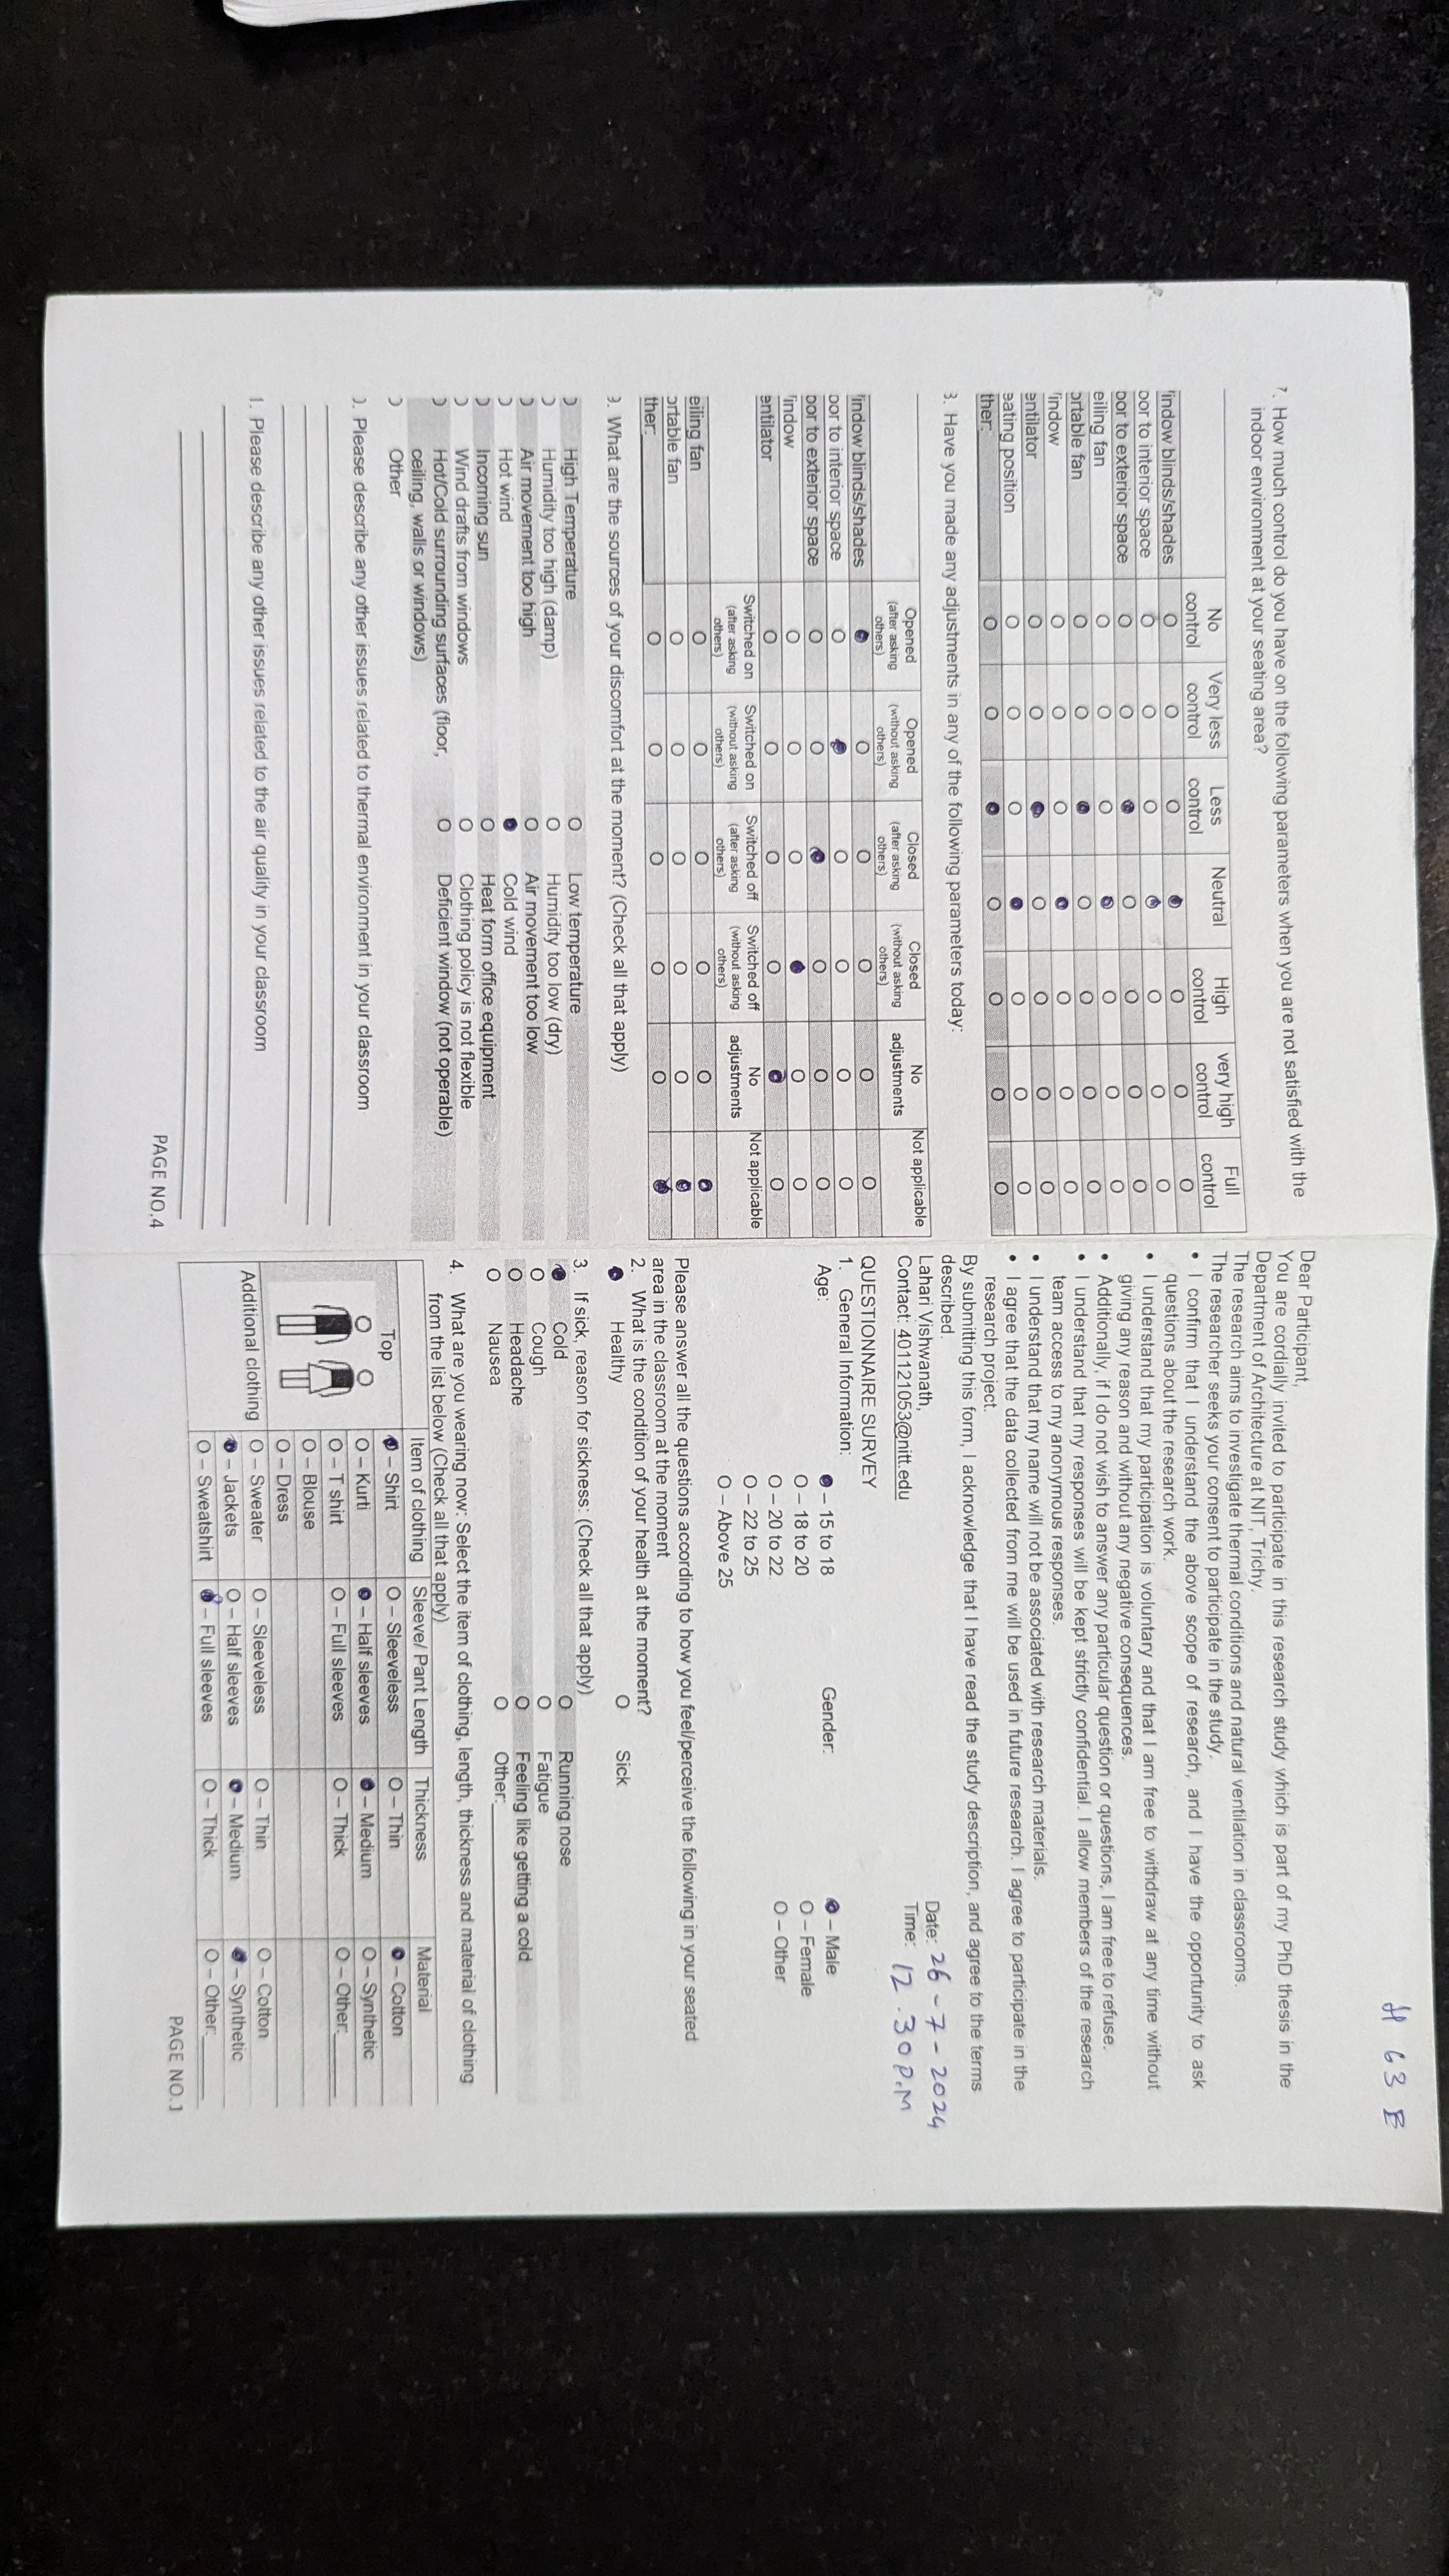 7. How much control do you have on the following parameters when you are not satisfied with the
indoor environment at your seating area?
No control Very less control Less control Neutral High control very high control Full control
indow blinds/shades O O O ● O O O
oor to interior space O O O ● O O O
oor to exterior space O O ● O O O O
eiling fan O O O ● O O O
ortable fan O O ● O O O O
indow O O O ● O O O
entilator O O ● O O O O
eating position O O O ● O O O
ther: O O ● O O O O
8. Have you made any adjustments in any of the following parameters today:
Opened (after asking others) Opened (without asking others) Closed (after asking others) Closed (without asking others) No adjustments Not applicable
indow blinds/shades ● O O O O O
oor to interior space O ● O O O O
oor to exterior space O O ● O O O
indow O O O ● O O
entilator O O O O ● O
Switched on (after asking others) Switched on (without asking others) Switched off (after asking others) Switched off (without asking others) No adjustments Not applicable
eiling fan O O O O O ●
ortable fan O O O O O ●
ther: O O O O O ●
9. What are the sources of your discomfort at the moment? (Check all that apply)
High Temperature O Low temperature
Humidity too high (damp) O Humidity too low (dry)
Air movement too high O Air movement too low
Hot wind ● Cold wind
Incoming sun O Heat form office equipment
Wind drafts from windows O Clothing policy is not flexible
Hot/Cold surrounding surfaces (floor, O Deficient window (not operable)
ceiling, walls or windows)
Other
). Please describe any other issues related to thermal environment in your classroom
1. Please describe any other issues related to the air quality in your classroom
PAGE NO.4
# 63 B
Dear Participant,
You are cordially invited to participate in this research study which is part of my PhD thesis in the
Department of Architecture at NIT, Trichy.
The research aims to investigate thermal conditions and natural ventilation in classrooms.
The researcher seeks your consent to participate in the study.
• I confirm that I understand the above scope of research, and I have the opportunity to ask
questions about the research work.
• I understand that my participation is voluntary and that I am free to withdraw at any time without
giving any reason and without any negative consequences.
• Additionally, if I do not wish to answer any particular question or questions, I am free to refuse.
• I understand that my responses will be kept strictly confidential. I allow members of the research
team access to my anonymous responses.
• I understand that my name will not be associated with research materials.
• I agree that the data collected from me will be used in future research. I agree to participate in the
research project.
By submitting this form, I acknowledge that I have read the study description, and agree to the terms
described.
Lahari Vishwanath, Date: 26-7-2024
Contact: 401121053@nitt.edu Time: 12.30 P.M
QUESTIONNAIRE SURVEY
1. General Information:
Age: ● – 15 to 18 Gender: ● – Male
O – 18 to 20 O – Female
O – 20 to 22 O – Other
O – 22 to 25
O – Above 25
Please answer all the questions according to how you feel/perceive the following in your seated
area in the classroom at the moment
2. What is the condition of your health at the moment?
● Healthy O Sick
3. If sick, reason for sickness: (Check all that apply)
● Cold O Running nose
O Cough O Fatigue
O Headache O Feeling like getting a cold
O Nausea O Other:
4. What are you wearing now: Select the item of clothing, length, thickness and material of clothing
from the list below (Check all that apply)
Item of clothing Sleeve/ Pant Length Thickness Material
Top ● – Shirt O – Sleeveless O – Thin ● – Cotton
O – Kurti ● – Half sleeves ● – Medium O – Synthetic
O O O – T shirt O – Full sleeves O – Thick O – Other:
O – Blouse
O – Dress
Additional clothing O – Sweater O – Sleeveless O – Thin O – Cotton
● – Jackets O – Half sleeves ● – Medium ● – Synthetic
O – Sweatshirt ● – Full sleeves O – Thick O – Other:
PAGE NO.1